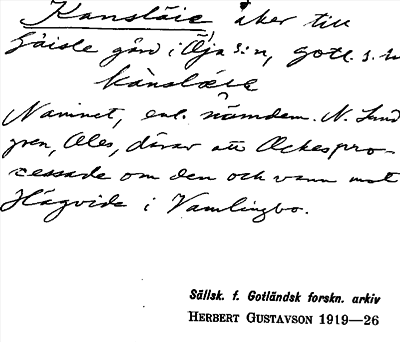 Kansläie åker till
Gåisle gård i Öja s:n, Gotl. s. h
känsläie
Namnet, enl. nämdem. N. Lind
gren, Oles, därav att Ockes pro-
cessade om den och vann mot
Hägvide i Vamlingbo.
Sällsk. f. Gotländsk forskn. arkiv
HERBERT GUSTAVSON 1919—26